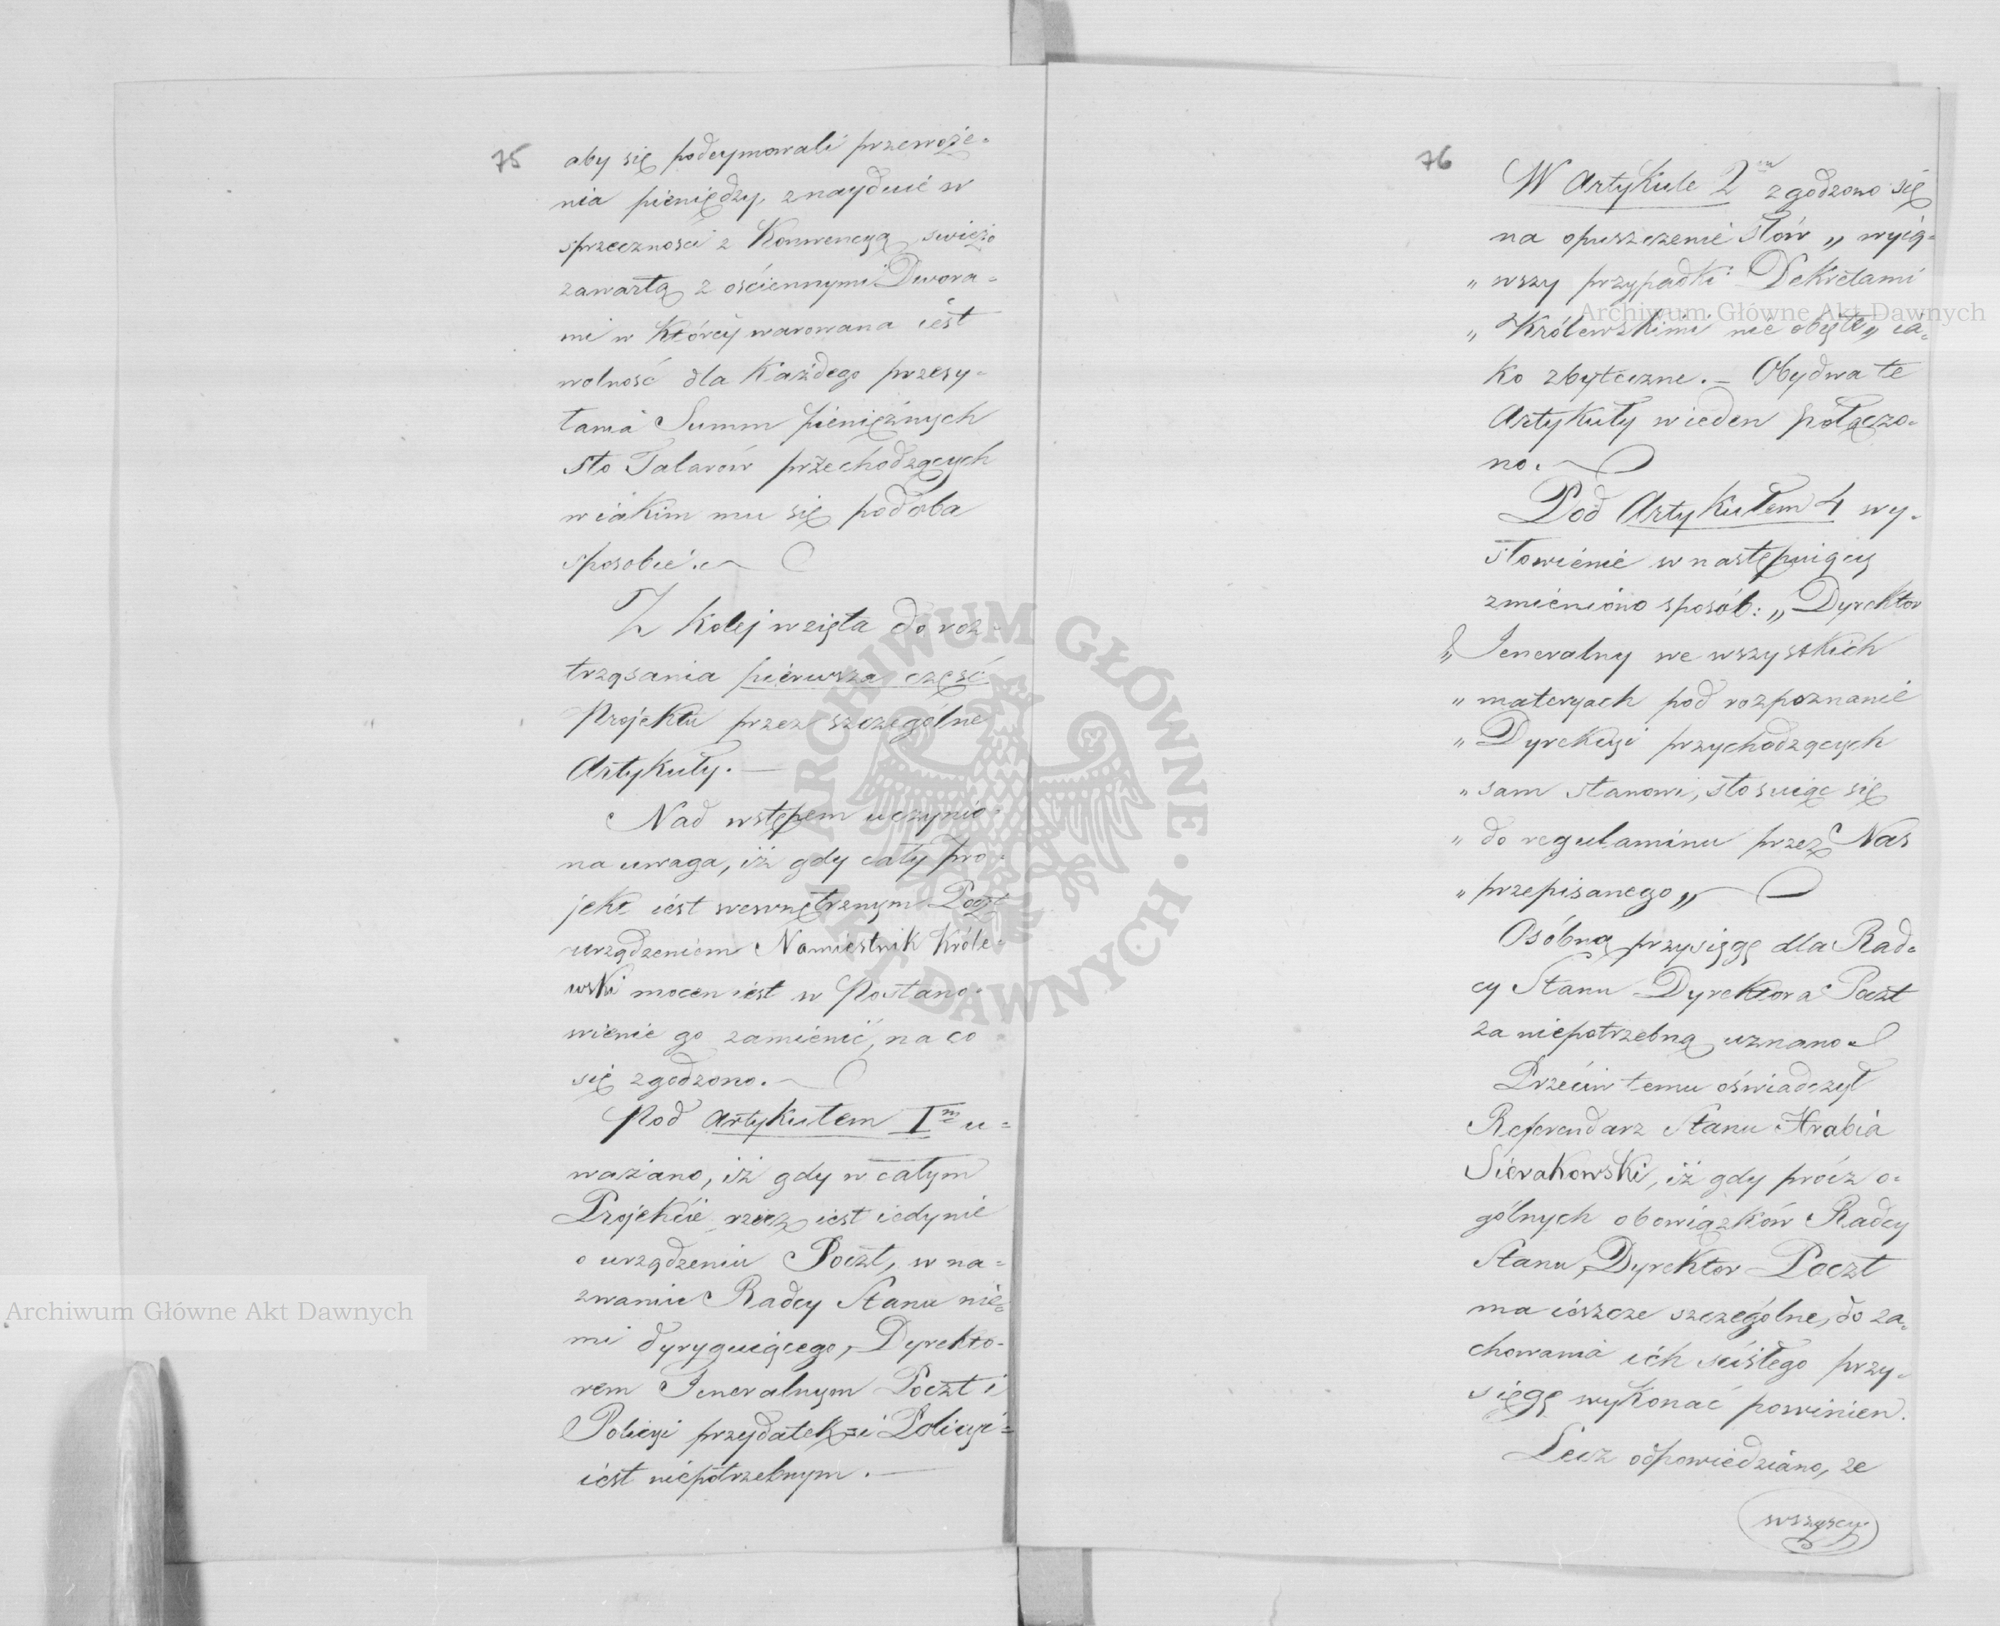 75
aby się podeymowali przewoże-
nia pieniędzy, znayduie w
sprzeczności z Konwencyą swieżo
zawartą z ościennymi Dwora-
mi w którey warowana iest
wolność dla każdego przesy-
łania Summ pieniężnych
sto Talarów przechodzących
w iakim mu się podoba
sposobie.
Z kolej wzięta do roz-
trząsania pierwsza część
Projektu przez szczególne
Artykuły.—
Nad wstępem uczynio-
na uwaga, iż gdy cały pro-
jekt iest wewnętrznym Poczt
urządzeniem Namiestnik Króle-
wski mocen iest w Postano-
wienie go zamienić, na co
się zgodzono.
Pod Artykułem Im u-
ważano, iż gdy w całym
Projekcie rzecz iest iedynie
o urządzeniu Poczt, w na-
zwaniu Radcy Stanu nie-
mi dyryguiącego, Dyrekto-
rem Jeneralnym Poczt i
Policyi przydatek i Policyi
iest niepotrzebnym.—
76
W Artykule 2m zgodzono się
na opuszczenie słów „ wyią-
„ wszy przypadki Dekretami
„ Królewskimi nie obięte„ ia-
ko zbyteczne.— Obydwa te
Artykuły w ieden połączo-
no.
Pod Artykułem 4 wy-
słowienie w następuiący
zmieniono sposób: „Dyrektor
„ Jeneralny we wszystkich
„ materyach pod rozpoznanie
„ Dyrekcyi przychodzących
„ sam stanowi, stosuiąc się
„ do regulaminu przez Nas
„ przepisanego„
Osóbną przysięgę dla Rad-
cy Stanu Dyrektora Poczt
za niepotrzebną uznano.
Przeciw temu oświadczył
Referendarz Stanu Hrabia
Sierakowski, iż gdy prócz o-
gólnych obowiązków Radcy
Stanu, Dyrektor Poczt
ma ieszcze szczególne, do za-
chowania ich ścisłego przy-
sięgę wykonać powinien.
Lecz odpowiedziano, że
wszyscy
Archiwum Główne Akt Dawnych
Archiwum Główne Akt Dawnych
ARCHIWUM GŁÓWNE · AKT DAWNYCH ·